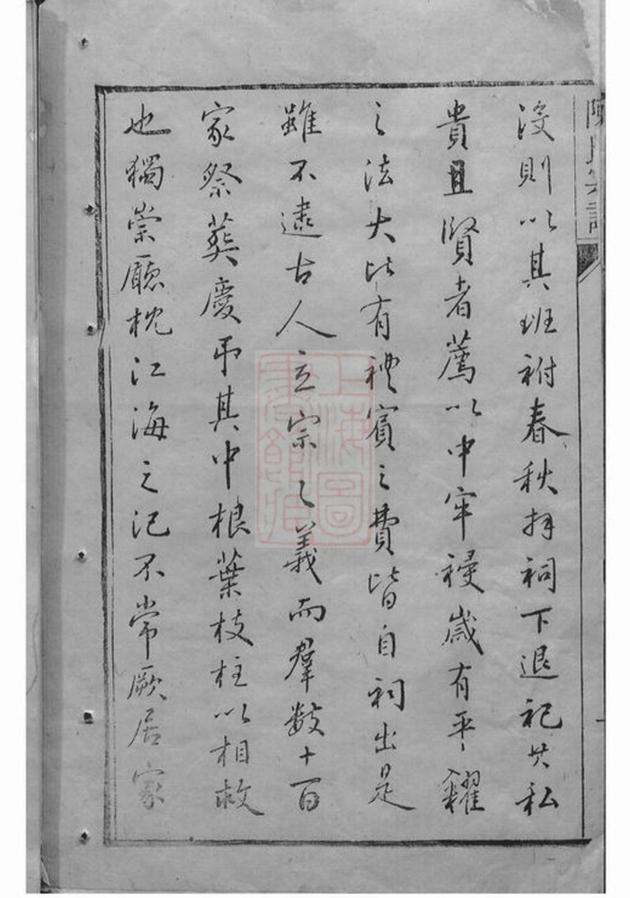 沒則以其班祔春秋拜祠下退祀其私
貴且賢者薦以中牢祲歲有平糶
之法大比有禮賓之費皆自祠出是
雖不逮古人立宗之義而羣數十百
家祭葬慶弔其中根葉枝柱以相救
也獨崇廳枕江海之汜不常厥居家